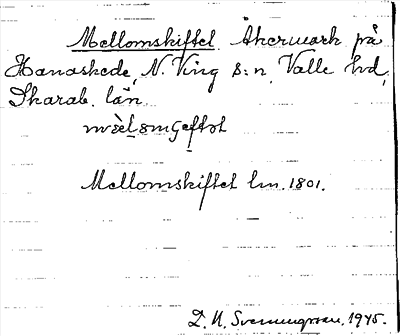 Mellomskiftet Åkermark på
Hanaskede, N. Ving s:n, Valle hd,
Skarab. län.
Mellomskiftet lm. 1801.
D. N. Svenungsson. 1945.